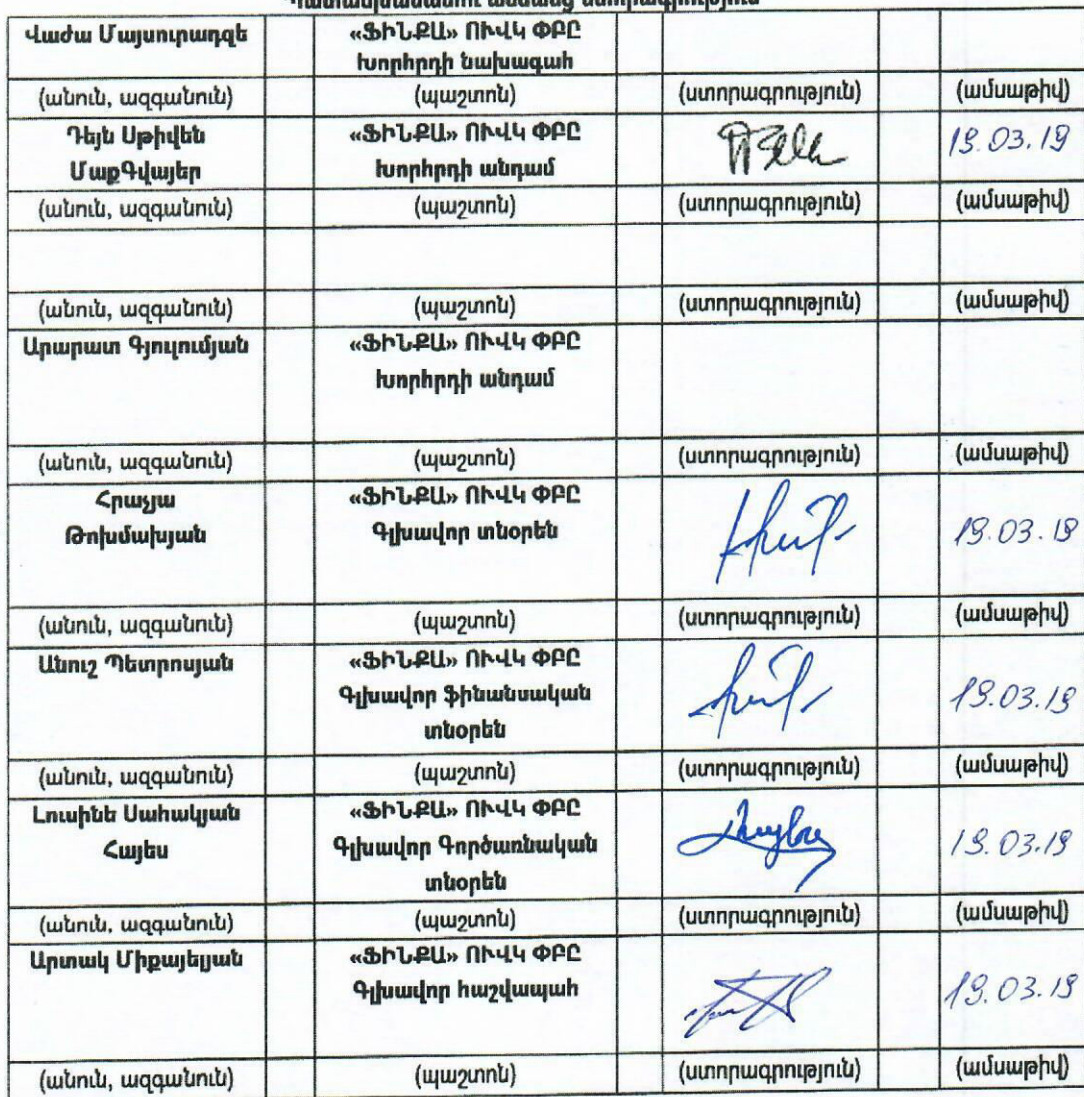 Պատասխանատու անձանց ստորագրություն
Վաժա Մայսուրաձզե «ՖԻՆՔԱ» ՈՒՎԿ ՓԲԸ
Խորհրդի նախագահ
(անուն, ազգանուն) (պաշտոն) (ստորագրություն) (ամսաթիվ)
Դեյն Սթիվեն «ՖԻՆՔԱ» ՈՒՎԿ ՓԲԸ 19.03.19
ՄաքԳվայեր Խորհրդի անդամ
(անուն, ազգանուն) (պաշտոն) (ստորագրություն) (ամսաթիվ)
(անուն, ազգանուն) (պաշտոն) (ստորագրություն) (ամսաթիվ)
Արարատ Գյուլումյան «ՖԻՆՔԱ» ՈՒՎԿ ՓԲԸ
Խորհրդի անդամ
(անուն, ազգանուն) (պաշտոն) (ստորագրություն) (ամսաթիվ)
Հրաչյա «ՖԻՆՔԱ» ՈՒՎԿ ՓԲԸ
Թոխմախյան Գլխավոր տնօրեն 19.03.19
(անուն, ազգանուն) (պաշտոն) (ստորագրություն) (ամսաթիվ)
Անուշ Պետրոսյան «ՖԻՆՔԱ» ՈՒՎԿ ՓԲԸ
Գլխավոր ֆինանսական 19.03.19
տնօրեն
(անուն, ազգանուն) (պաշտոն) (ստորագրություն) (ամսաթիվ)
Լուսինե Սահակյան «ՖԻՆՔԱ» ՈՒՎԿ ՓԲԸ
Հայես Գլխավոր Գործառնական 19.03.19
տնօրեն
(անուն, ազգանուն) (պաշտոն) (ստորագրություն) (ամսաթիվ)
Արտակ Միքայելյան «ՖԻՆՔԱ» ՈՒՎԿ ՓԲԸ
Գլխավոր հաշվապահ 19.03.19
(անուն, ազգանուն) (պաշտոն) (ստորագրություն) (ամսաթիվ)